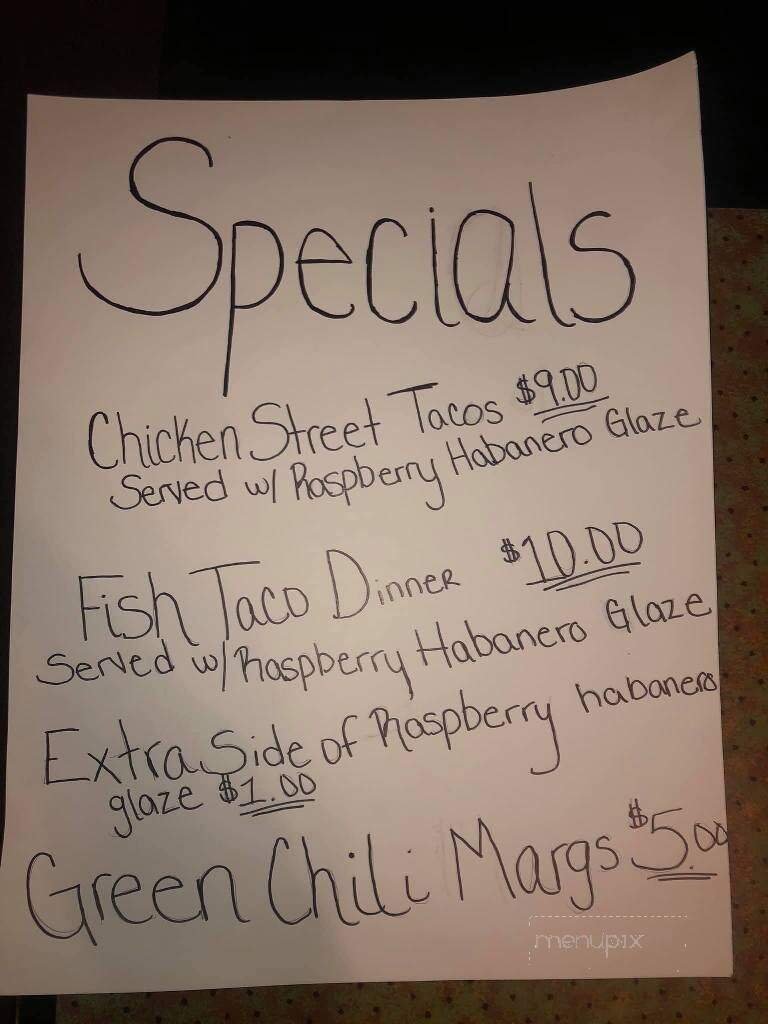 Specials
Chicken Street Tacos $9.00
Served w/ Raspberry Habanero Glaze
Fish Taco Dinner $10.00
Served w/ Raspberry Habanero Glaze
Extra Side of Raspberry habanero
glaze $1.00
Green Chili Margs $5.00
menupix